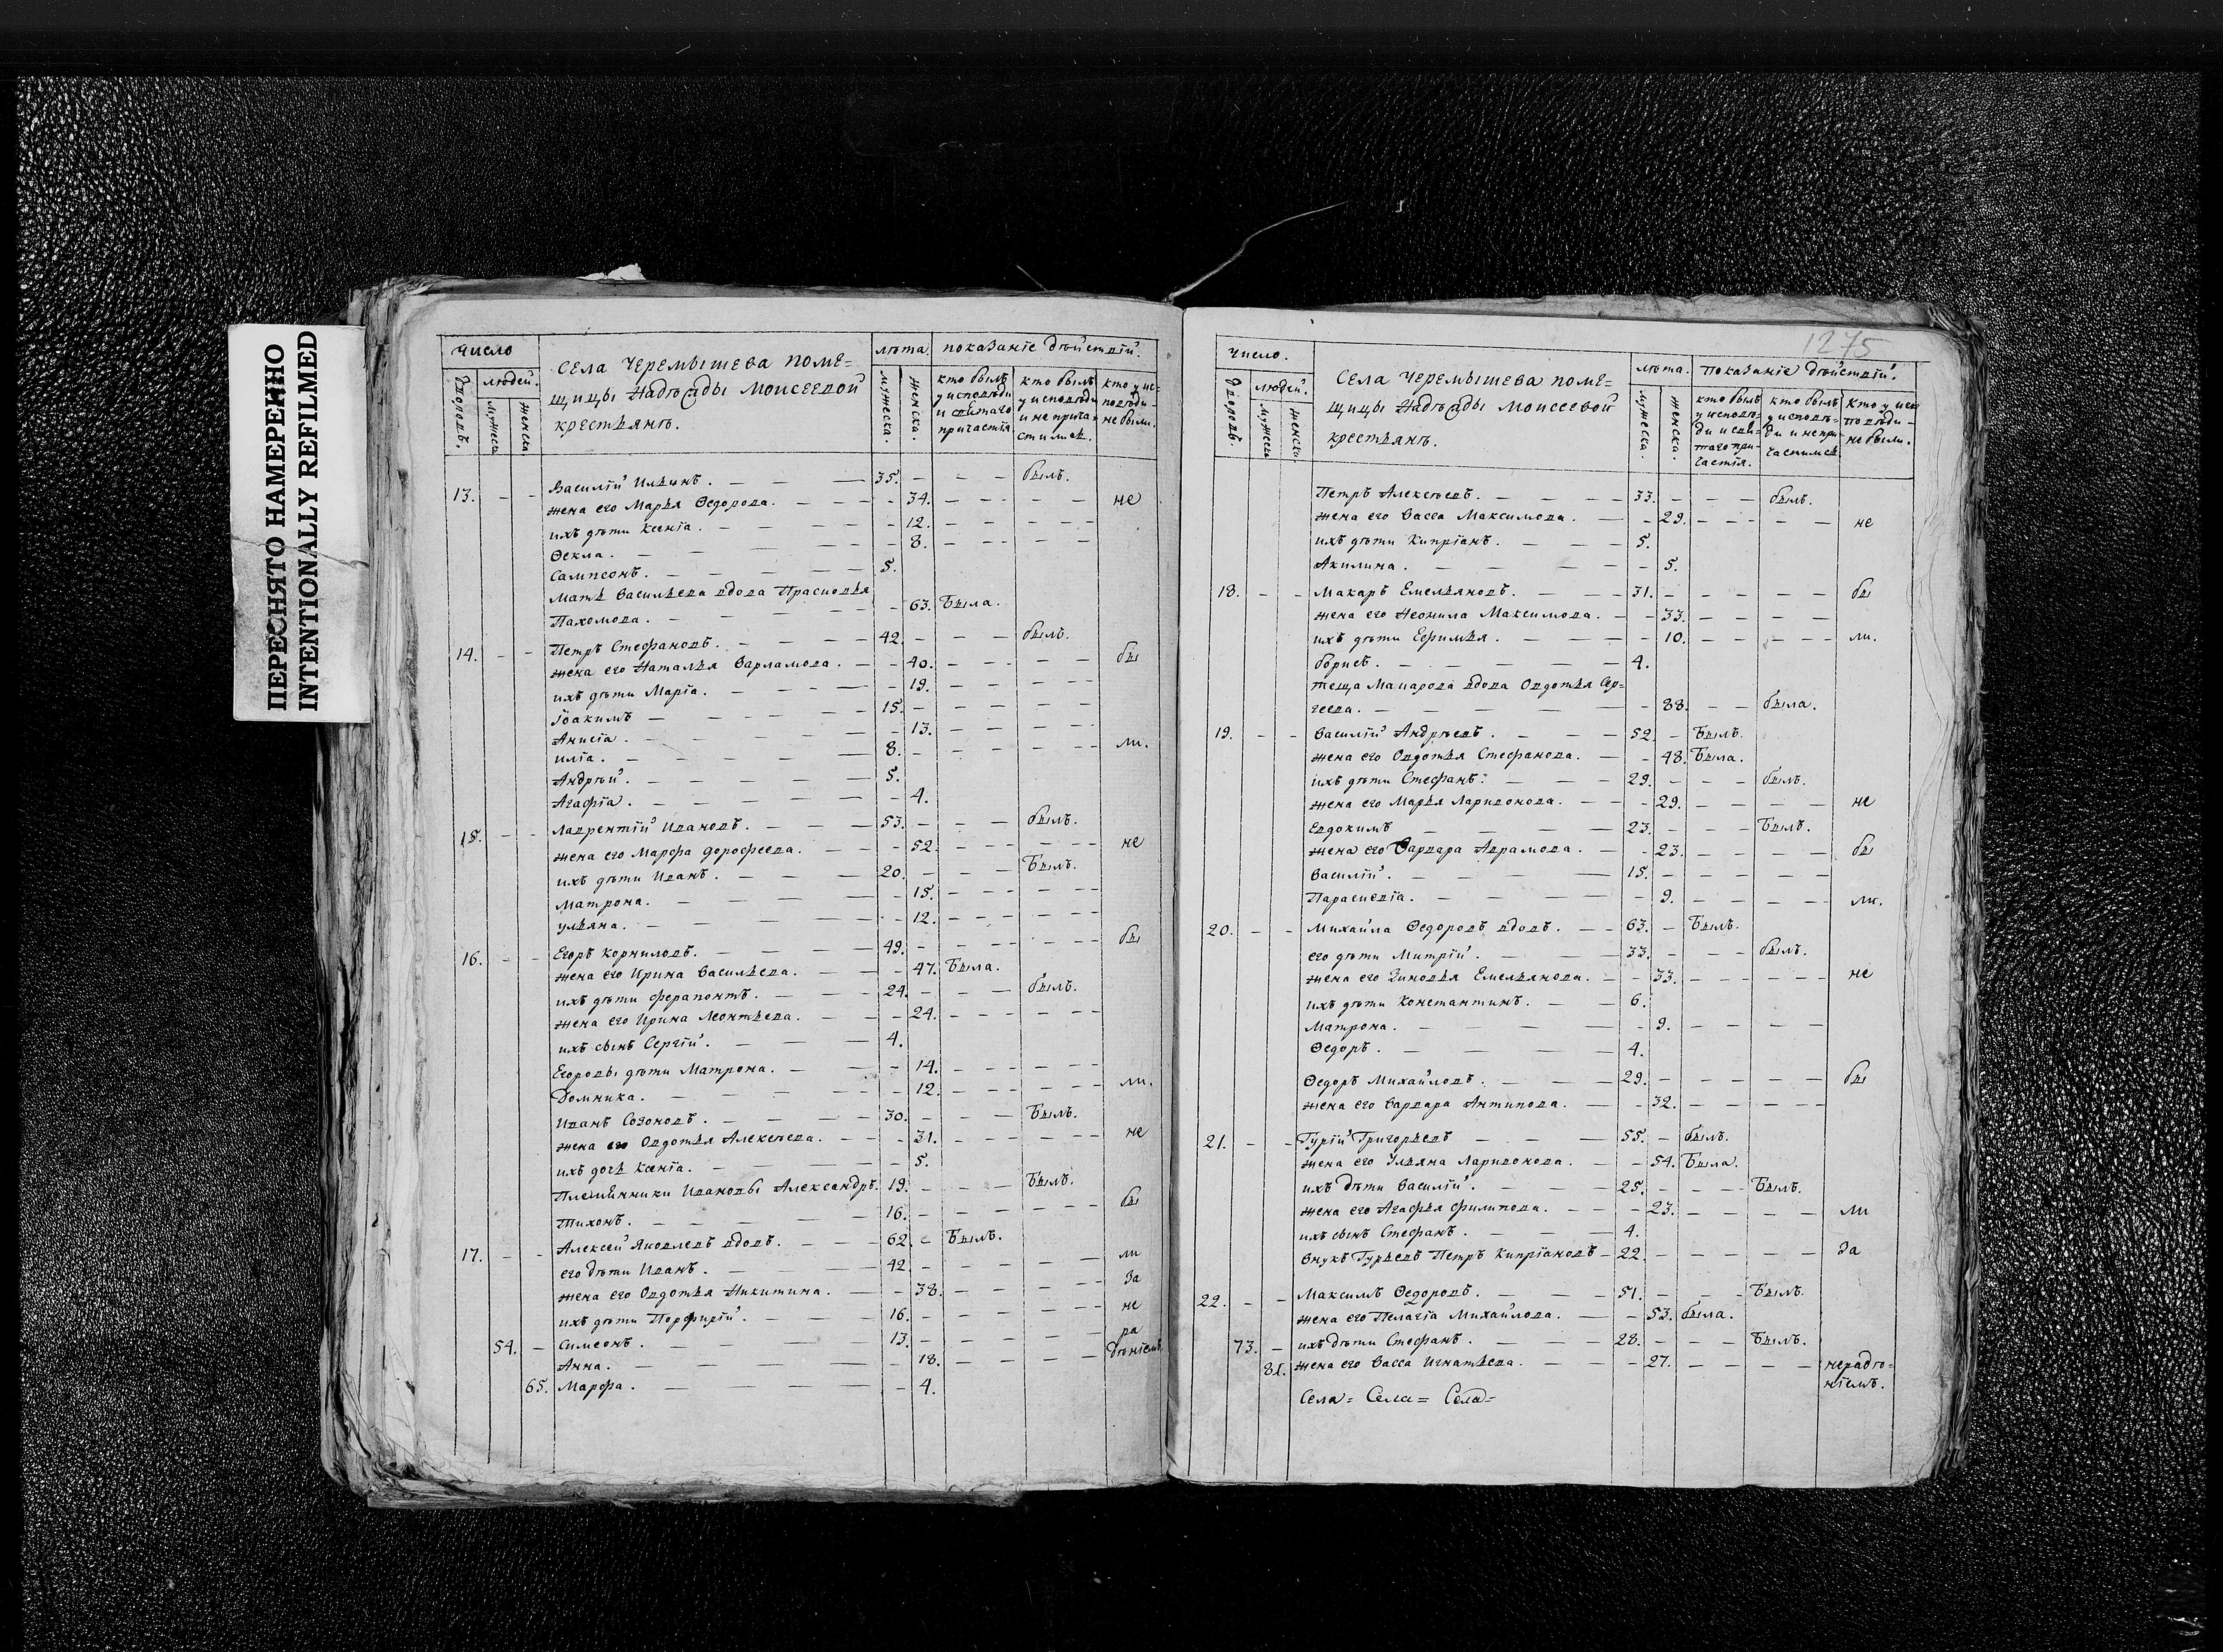 ПЕРЕСНЯТО НАМЕРЕННО
INTENTIONALLY REFILMED
число
людей.
Дворовъ.
мужеск
женска
села Черемышева поме=
щицы Надѣжды Моисеевой
крестьянъ.
лѣта.
мужеска.
женска.
показаніе дѣйствій.
кто былъ
у исповѣди
и святаго
причастія.
кто былъ
у исповѣди
и не прича=
стился.
кто у ис=
повѣди
не были.
13. Василій Ильинъ. 35. былъ.
жена его Марья Ѳедорова. 34. не
ихъ дѣти Ксенія. 12.
Ѳекла. 8.
Сампсонъ. 5.
Мать Васильева вдова Прасковья
Пахомова. 63. Была.
14. Петръ Стефановъ. 42. былъ.
жена его Наталья Варламова. 40. бы
ихъ дѣти Марія. 19.
Іоакимъ 15.
Анисія. 13.
илія. 8. ли.
Андрѣй. 5.
Агафія. 4.
15. Лаврентій Ивановъ. 53. былъ.
жена его Марфа Дорофеева. 52. не
ихъ дѣти Иванъ. 20. Былъ.
Матрона. 15.
ульяна. 12.
16. Егоръ Корниловъ. 49. бы
жена его Ирина Васильева. 47. Была.
ихъ дѣти Ферапонтъ. 24. былъ.
жена его Ирина Леонтьева. 24.
ихъ сынъ Сергій. 4.
Егоровы дѣти Матрона. 14.
Домника. 12. ли.
Иванъ Созоновъ. 30. Былъ.
жена его Овдотья Алексеева. 31. не
ихъ дочь Ксенія. 5.
Племянники Ивановы Александръ. 19. Былъ.
Тихонъ. 16. бы
17. Алексей Яковлевъ вдовъ. 62. Былъ.
его дѣти Иванъ. 42. ли
жена его Овдотья Никитина. 38. За
ихъ дѣти Порфирій. 16. не
54. Симеонъ. 13. ра
Анна. 18. дѣніемъ.
65. Марфа. 4.
1275
число.
людей.
Дворовъ.
мужеск
женск.
Села Черемышева поме=
щицы Надѣжды Моисеевой
крестьянъ.
лѣта.
мужеска.
женска.
показаніе дѣйствій.
кто былъ
у исповѣ=
ди и свя=
таго при=
частія.
кто былъ
у исповѣ=
ди и непри=
частился
кто у исп
повѣди
не были.
Петръ Алексѣевъ. 33. былъ.
жена его Васса Максимова. 29. не
ихъ дѣти Кипріанъ. 5.
Акилина. 5.
18. Макаръ Емельяновъ. 31. бы
жена его Неонила Максимова. 33.
ихъ дѣти Ефимья. 10. ли.
борисъ. 4.
теща Макарова вдова Овдотья Сер=
геева. 88. была.
19. Василій Андрѣевъ. 52. Былъ.
жена его Овдотья Стефанова. 48. Была.
ихъ дѣти Стефанъ. 29. былъ.
жена его Марья Ларивонова. 29. не
Евдокимъ 23. Былъ.
жена его Варвара Аврамова. 23. бы
Василій. 15.
Параскевія. 9. ли.
20. Михайла Ѳедоровъ вдовъ. 63. Былъ.
его дѣти Митрій. 33. былъ.
жена его Зиновья Емельянова. 33. не
ихъ дѣти Константинъ. 6.
Матрона. 9.
Ѳедоръ. 4.
Ѳедоръ Михайловъ. 29. бы
жена его Варвара Антипова. 32.
21. Гурій Григорьевъ 55. былъ.
жена его Ульяна Ларивонова. 54. Была.
ихъ дѣти Василій. 25. Былъ.
жена его Агафья Филипова. 23. ли
ихъ сынъ Стефанъ. 4.
Внукъ Гурьевъ Петръ Кипріановъ 22. За
22. Максимъ Ѳедоровъ. 51. Былъ.
жена его Пелагія Михайлова. 53. была.
73. ихъ дѣти Стефанъ. 28. Былъ.
81. жена его Васса Игнатьева. 27. нерадѣ=
ніемъ.
Села= Села= Села=